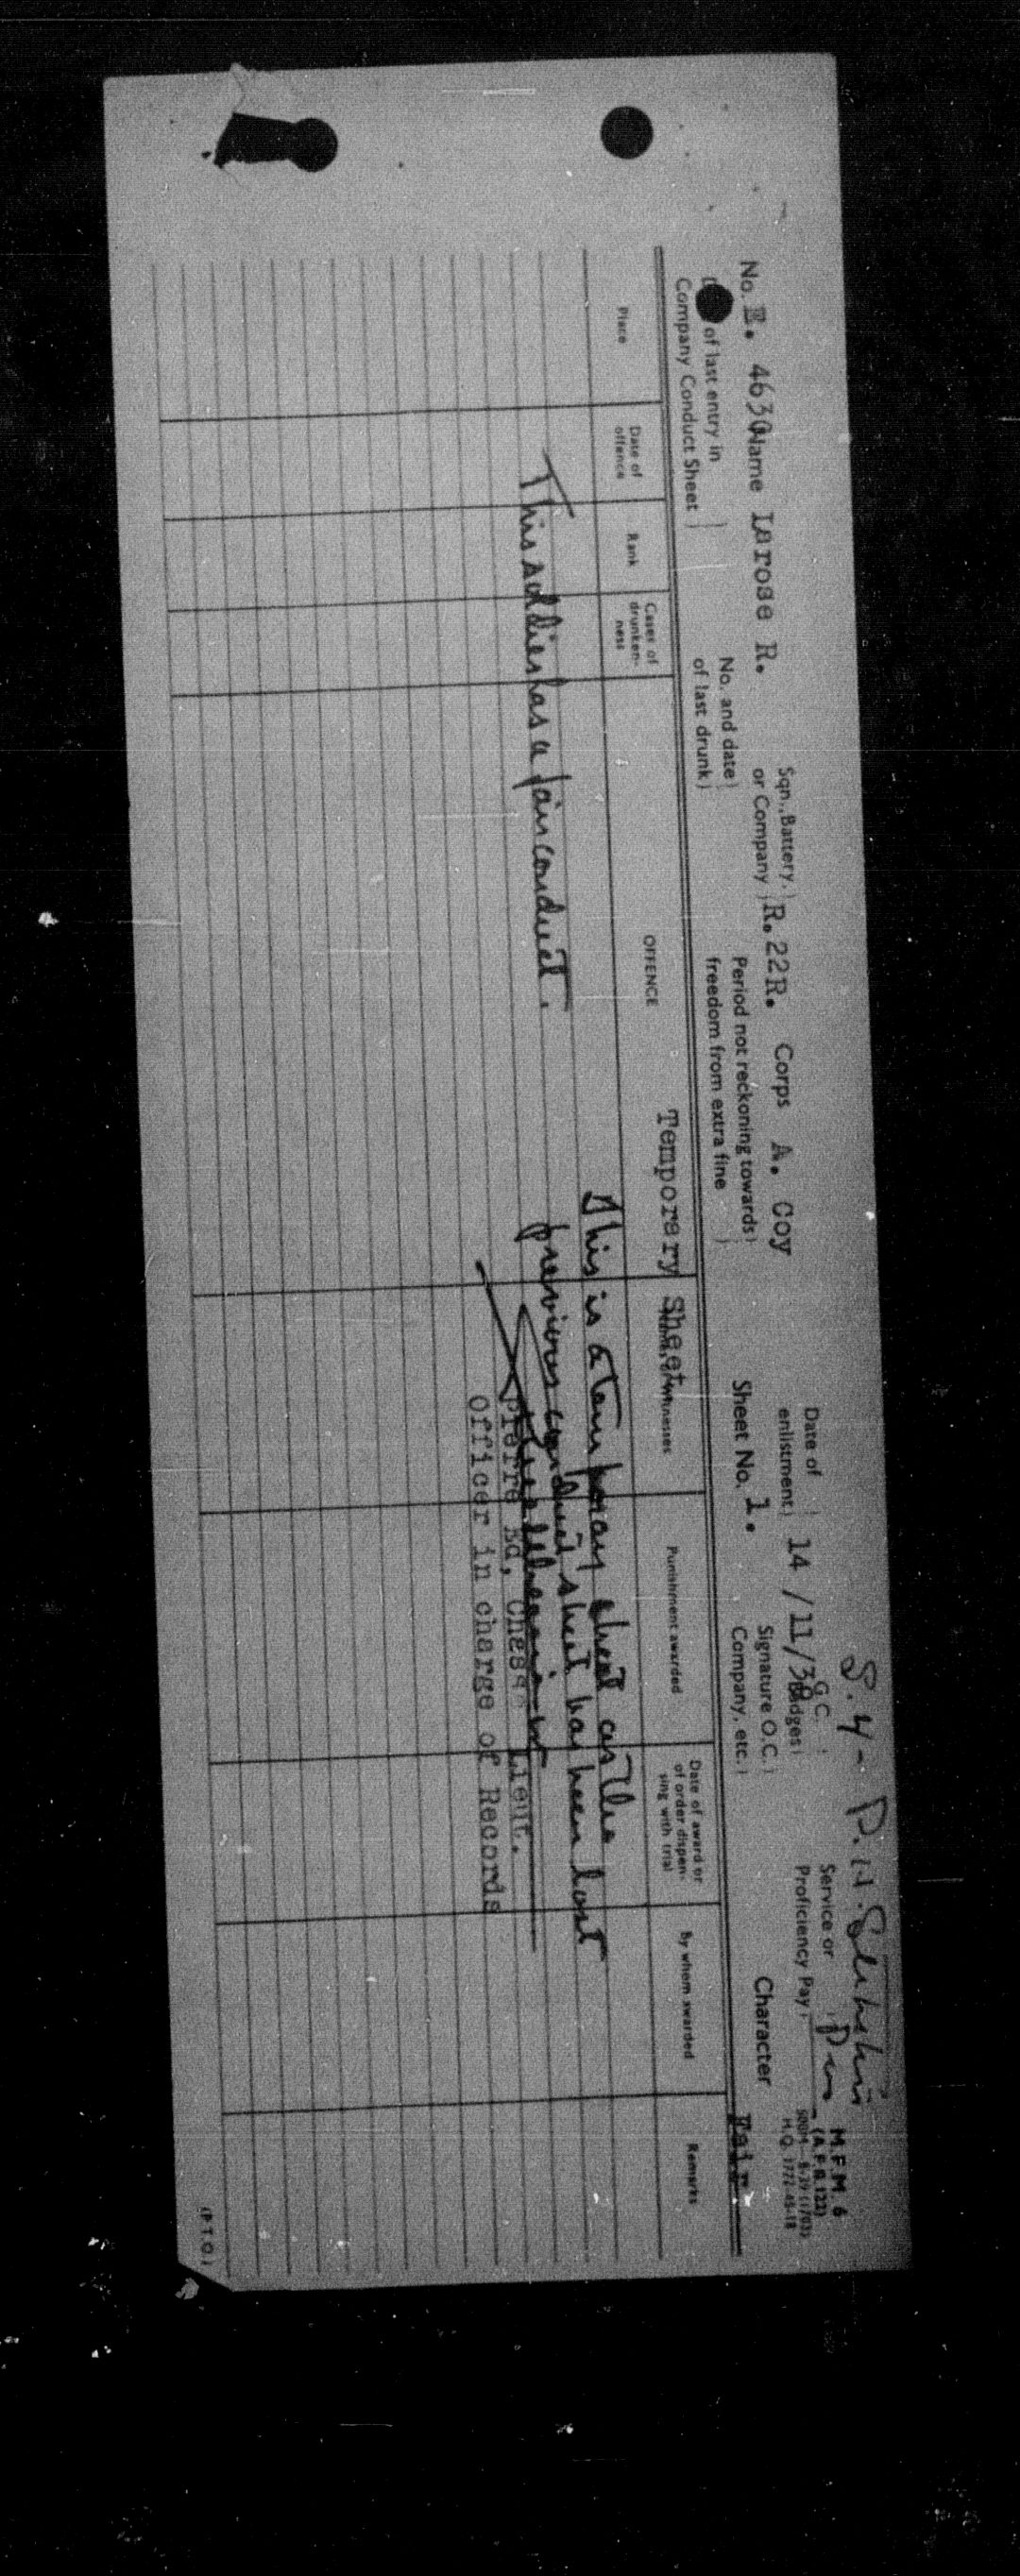 S. 4 - D.
M.F.M. 6
(A.F.B. 122)
500M. 8-39 (1703)
H.Q. 1772-45-18
No. E. 4630 Name Larose R. Sqn., Battery, or Company R. 22R. Corps A. Coy Date of enlistment 14 /11/39 G.C. Badges Service or Proficiency Pay
Date of last entry in Company Conduct Sheet No. and date of last drunk Period not reckoning towards freedom from extra fine Sheet No. 1. Signature O.C. Company, etc. Character Fair
Temporary Sheet
Place Date of offence Rank Cases of drunken-ness OFFENCE Names of Witnesses Punishment awarded Date of award or of order dispen-sing with trial By whom awarded Remarks
This is a temporary sheet as the
previous conduct sheet has been lost
This soldier has a fair conduct.
Pierre Ed, Lieut.
Officer in charge of Records
(P.T.O.)